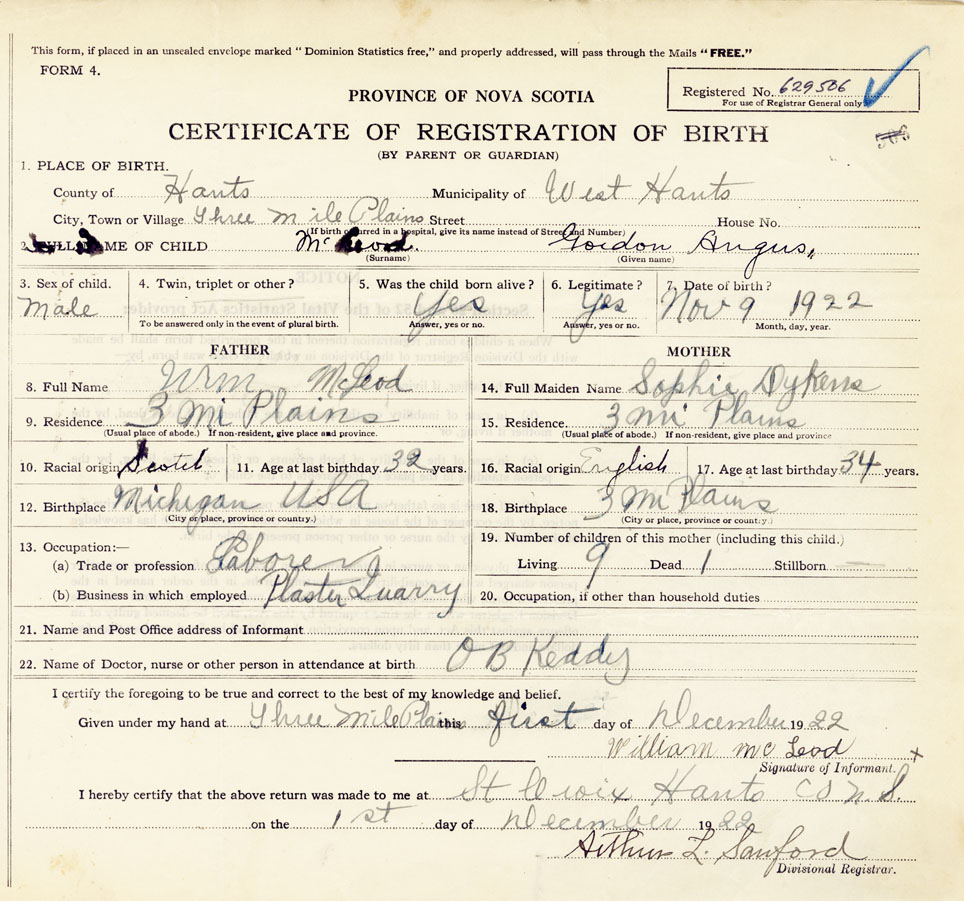 This form, if placed in an unsealed envelope marked "Dominion Statistics free," and properly addressed, will pass through the Mails "FREE."
FORM 4.
Registered No. 629506
For use of Registrar General only
506
PROVINCE OF NOVA SCOTIA
CERTIFICATE OF REGISTRATION OF BIRTH
(BY PARENT OR GUARDIAN)
1. PLACE OF BIRTH.
County of Hants Municipality of West Hants
City, Town or Village Three Mile Plains Street House No.
(If birth occurred in a hospital, give its name instead of Street and Number)
2. FULL NAME OF CHILD McLeod. Gordon Angus,
(Surname) (Given name)
3. Sex of child. 4. Twin, triplet or other? 5. Was the child born alive? 6. Legitimate? 7. Date of birth?
Male Yes Yes Nov 9 1922
To be answered only in the event of plural birth. Answer, yes or no. Answer, yes or no. Month, day, year.
FATHER MOTHER
8. Full Name Wm McLeod 14. Full Maiden Name Sophie Dykens
9. Residence 3 Mi Plains 15. Residence 3 Mi Plains
(Usual place of abode.) If non-resident, give place and province. (Usual place of abode.) If non-resident, give place and province
10. Racial origin Scotch 11. Age at last birthday 32 years. 16. Racial origin English 17. Age at last birthday 34 years.
12. Birthplace Michigan USA 18. Birthplace 3 Mi Plains
(City or place, province or country.) (City or place, province or country.)
13. Occupation:— 19. Number of children of this mother (including this child.)
(a) Trade or profession Laborer Living 9 Dead 1 Stillborn —
(b) Business in which employed Plaster Quarry 20. Occupation, if other than household duties
21. Name and Post Office address of Informant
22. Name of Doctor, nurse or other person in attendance at birth O B Keddy
I certify the foregoing to be true and correct to the best of my knowledge and belief.
Given under my hand at Three Mile Plains this first day of December 1922
William McLeod x
Signature of Informant.
I hereby certify that the above return was made to me at St Croix Hants Co N.S.
on the 1st day of December 1922
Arthur L. Sanford
Divisional Registrar.